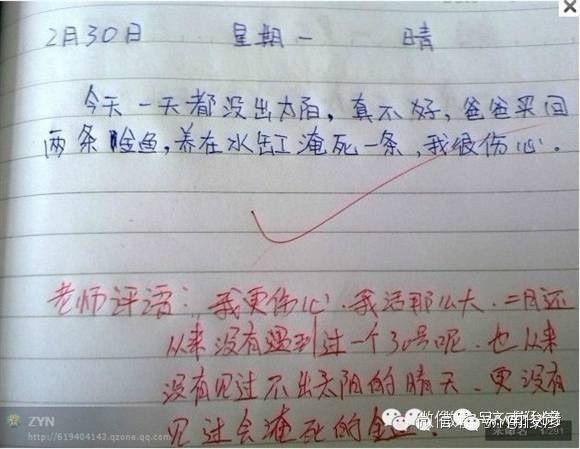 2月30日 星期一 晴
今天一天都没出太阳，真不好，爸爸买回
两条金鱼，养在水缸淹死一条，我很伤心。
老师评语：我更伤心．我活那么大．二月还
从来没有遇到过一个30号呢．也从来
没有见过不出太阳的晴天．更没有
见过会淹死的金鱼．
ZYN
http://619404142.qzone.qq.com